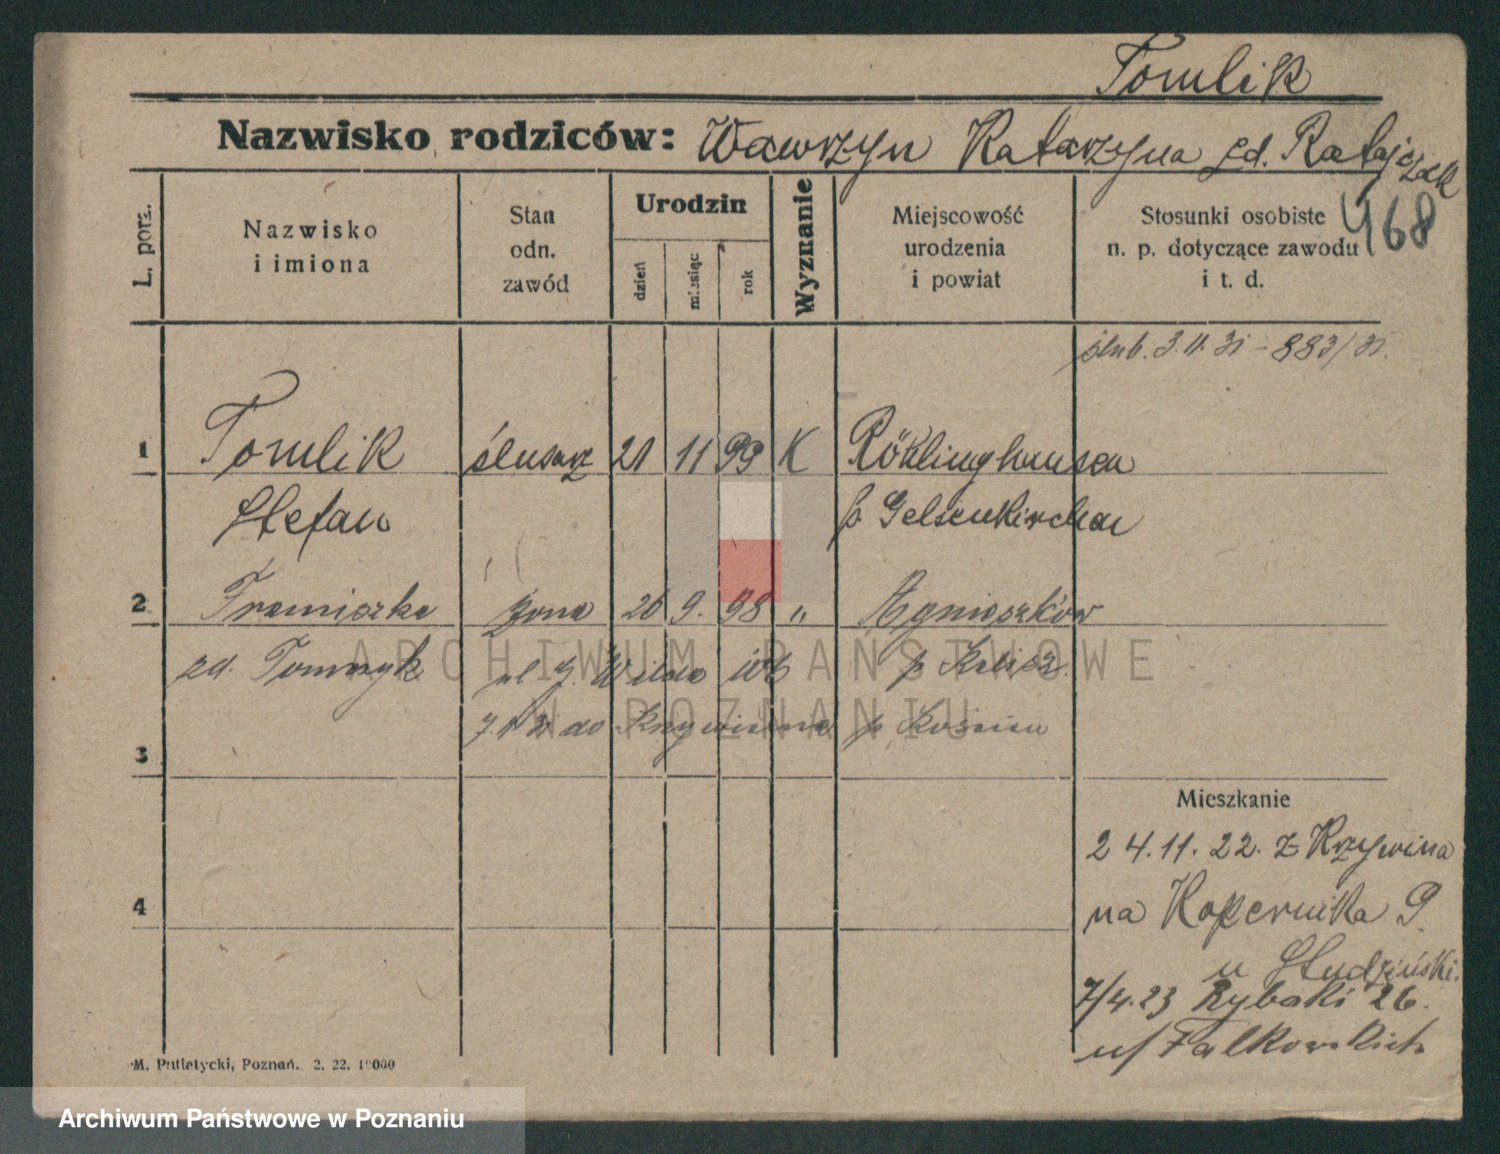 Tomlik
Nazwisko rodziców: Wawrzyn Katarzyna zd. Ratajczak
468
L. porz.
Nazwisko
i imiona
Stan
odn.
zawód
Urodzin
dzień
miesiąc
rok
Wyznanie
Miejscowość
urodzenia
i powiat
Stosunki osobiste
n. p. dotyczące zawodu
i t. d.
ślub. 3. 11. 31 - 883/31.
1 Tomlik ślusarz 21 11 99 K Röhlinghausen
Stefan p Gelsenkirchen
2 Franciszka żona 26 9. 98 " Agnieszków
zd. Tomczyk p Kalisz
do Krzywinia p Kościan
3
Mieszkanie
24.11.22. z Krzywina
4
na Kopernika 9.
u Studziński.
7/4.23 Rybaki 26.
u/ Falkowskich
M. Putiatycki, Poznań. 2. 22. 10000
ARCHIWUM PAŃSTWOWE
W POZNANIU
Archiwum Państwowe w Poznaniu